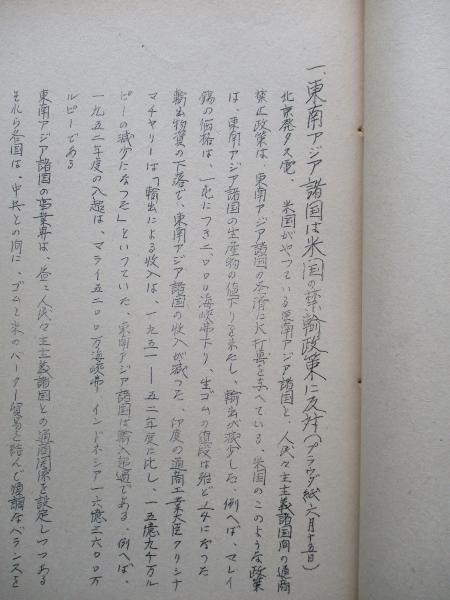 一、東南アジア諸国は米国の禁輸政策に反対(プラウダ紙六月十五日)
北京発タス電、米国がやっている東南アジア諸国と、人民々主々義諸国間の通商
禁止政策は、東南アジア諸国の経済に大打撃を与へている、米国のこのような政策
は、東南アジア諸国の生産物の値下りを来たし、輸出が減少した、例へば、マレイ
錫の価格は、一屯につき二、〇〇〇海峡弗下り、生ゴムの値段は殆ど になった
輸出物資の下落で、東南アジア諸国の収入が減った、印度の通商工業大臣クリシナ
マチャリーは「輸出による収入は、一九五一——五二年度に比し、一五億九千万ル
ピーの減少になった」といっていた、東南アジア諸国は輸入超過である、例へば、
一九五二年度の入超は、マライ五二〇〇万海峡弗 インドネシア一六億三六〇〇万
ルピーである
東南アジア諸国の事業界は、益々人民々主主義諸国との通商関係を設定しつつある
それら各国は、中共との間に、ゴムと米のバーター貿易を結んで順調なバランスを